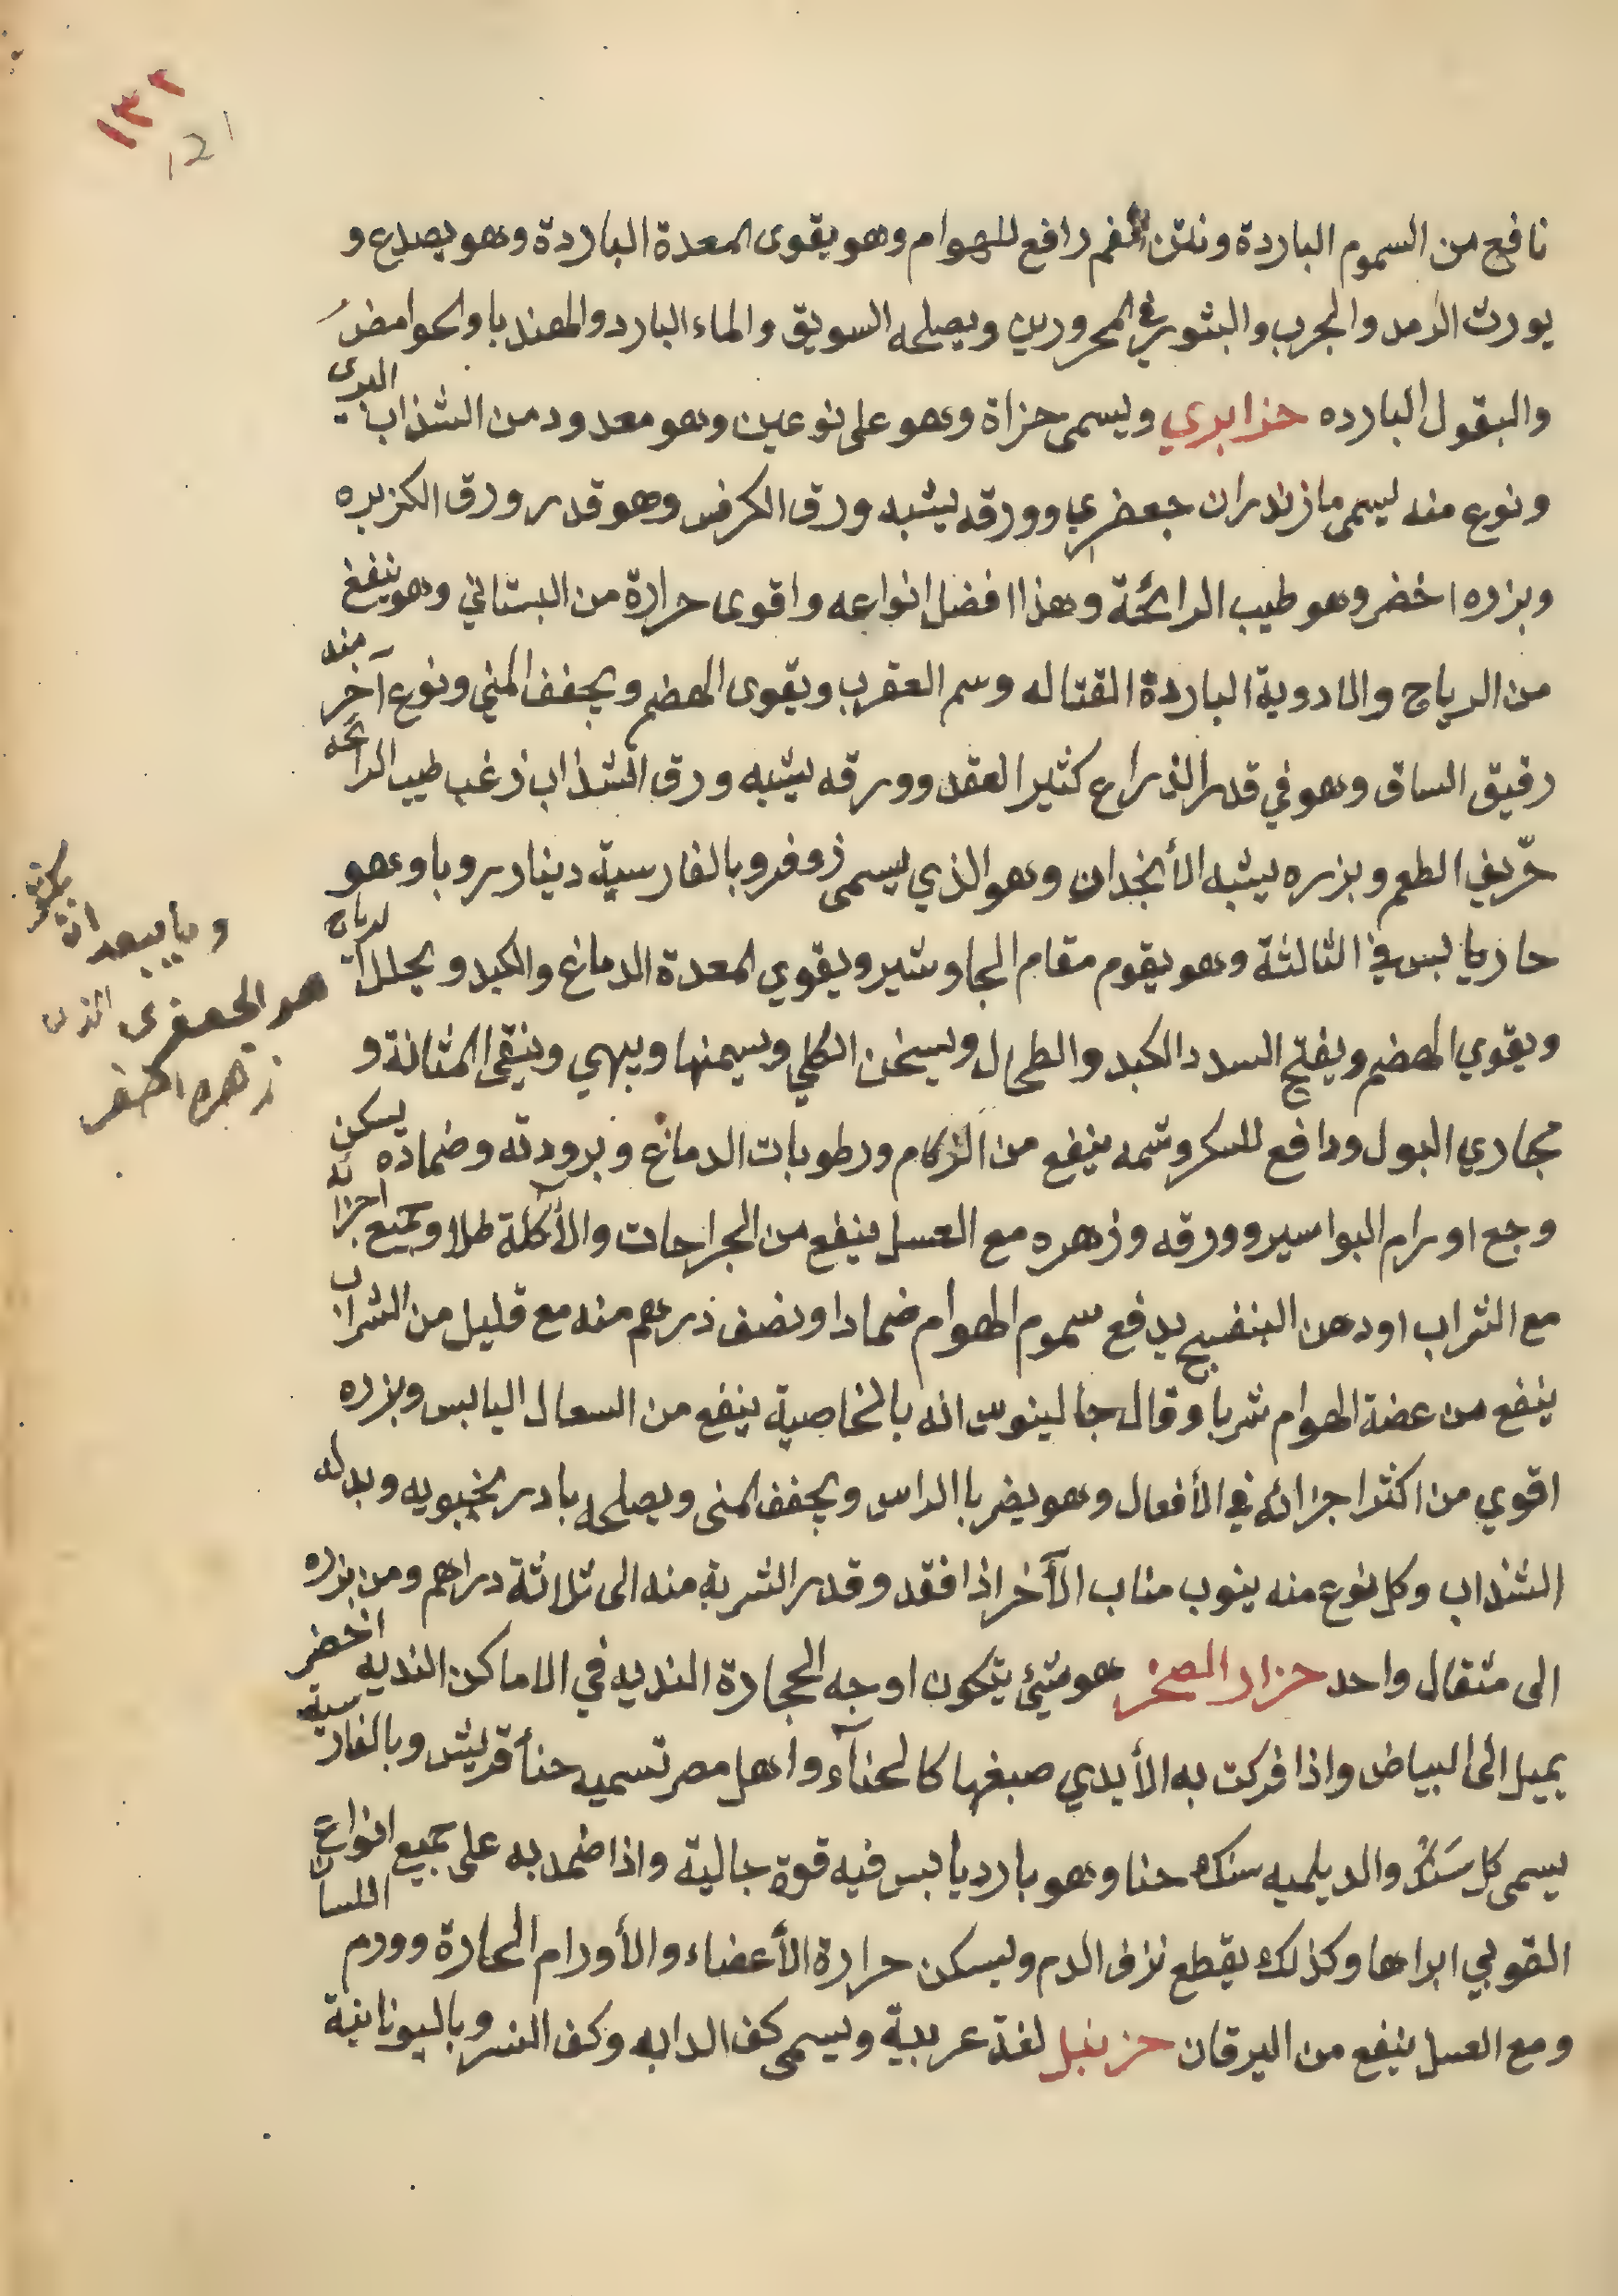 ١٣٢
121
نافع من السموم الباردة ونتن الفم رافع للهوام وهو يقوى المعدة الباردة وهو يصدع و
يورث الرمد والجرب والبثور في المحرورين ويصلحه السويق والماء البارد والهندبا والحوامض
والبقول البارده حزا بري ويسمى حزاة وهو على نوعين وهو معدود من الشذاب البرى
ونوع منه يسمى مازندران جعفري وورقه يشبه ورق الكرفس وهو قدر ورق الكزبره
وبزره اخضر وهو طيب الرائحة وهذا افضل انواعه واقوى حرارة من البستاني وهو ينفع
من الرياح والادوية الباردة القتاله وسم العقرب ويقوى الهضم ويجفف المني ونوع آخر منه
رقيق الساق وهو في قدر الذراع كثير العقد وورقه يشبه ورق الشذاب زغب طيب الرائحه
حرّيف الطعم وبزره يشبه الأنجدان وهو الذي يسمى زوفر وبالفارسية دينارروبا وهو
حار يابس في الثالثة وهو يقوم مقام الجاوشير ويقوي المعدة الدماغ والكبد ويحلل الرياح
ويقوي الهضم ويفتح السدد الكبد والطحال ويسخن الكلي ويسمنها ويبهي وينقى المثانة و
مجاري البول ودافع للسكر وشمه ينفع من الزكام ورطوبات الدماغ وبرودته وضماده يسكن
وجع اورام البواسير وورقه وزهره مع العسل ينفع من الجراحات والأكلة طلا وجميع اجزائه
مع الشراب اودهن البنفسج يدفع سموم الهوام ضمادا ونصف درهم منه مع قليل من الشراب
ينفع من عضة الهوام شربا وقال جالينوس انه بالخاصية ينفع من السعال اليابس وبزره
اقوي من اكثر اجزائه في الأفعال وهو يضر باالراس ويجفف المنى ويصلحه بادرنجبويه وبدله
الشذاب وكل نوع منه ينوب مناب الآخر اذا فقد وقدر الشربة منه الى ثلاثة دراهم ومن بزره
الى مثقال واحد حزاز الصخر هو شئ يتكون اوجه الحجارة النديه في الاماكن النديه اخضر
يميل الى البياض واذا فركت به الأيدي صبغها كالحنآء واهل مصر تسميه حنأ قريش وبالفارسية
يسمى كل سَنك والديلميه سنك حنا وهو بارد يابس فيه قوة جالية واذا ضمد به على جميع انواع
القوبي ابراها وكذلك يقطع نزف الدم ويسكن حرارة الأعضاء والأورام الحارة وورم اللسان
ومع العسل ينفع من اليرقان حزنبل لغة عربية ويسمى كف الدابه وكف النسر وباليونانية
يبعد ان يكون
هو الجعفرى الذى
زهره اصفر